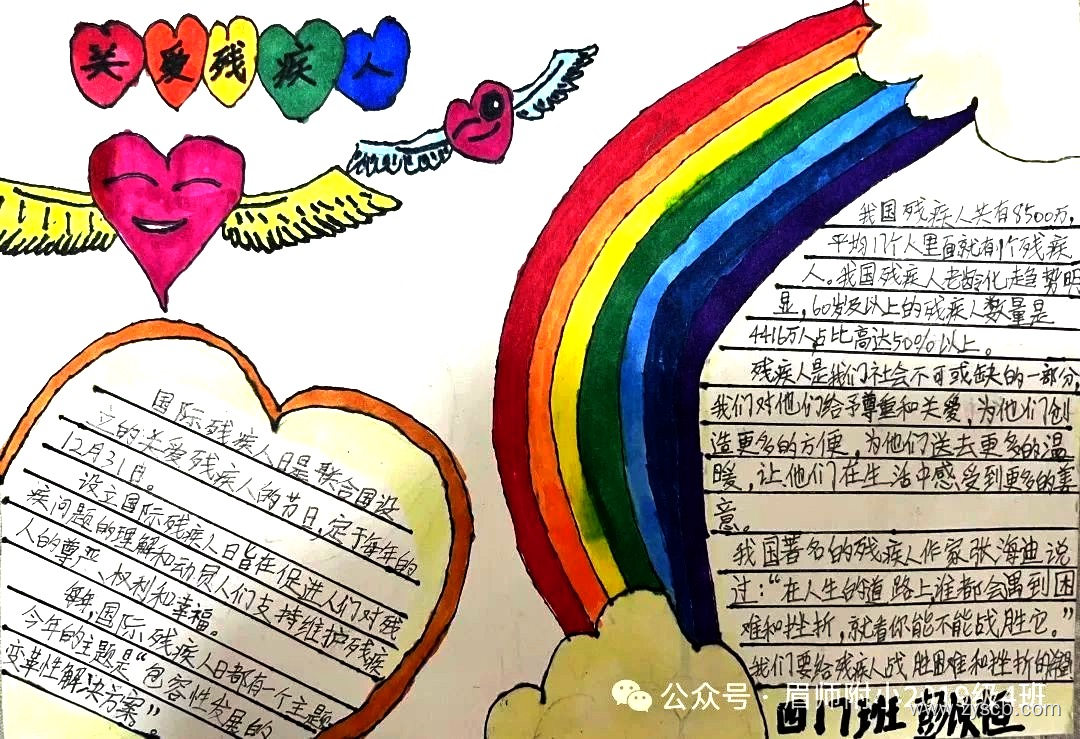 关爱残疾人
国际残疾人日是联合国设
立的关爱残疾人的节日,定于每年的
12月31日。
设立国际残疾人日旨在促进人们对残
疾问题的理解和动员人们支持维护残疾
人的尊严、权利和幸福。
每年,国际残疾人日都有一个主题
今年的主题是“包容性发展的
变革性解决方案”
我国残疾人共有8500万,
平均17个人里面就有1个残疾
人。我国残疾人老龄化趋势明
显,60岁及以上的残疾人数量是
4416万人占比高达50%以上。
残疾人是我们社会不可或缺的一部分,
我们对他们给予尊重和关爱,为他们创
造更多的方便,为他们送去更多的温
暖,让他们在生活中感受到更多的善
意。
我国著名的残疾人作家张海迪说
过:“在人生的道路上谁都会遇到困
难和挫折,就看你能不能战胜它。”
我们要给残疾人战胜困难和挫折的
公众号·首师附小2019级4班
www.zyscb.com
四4班